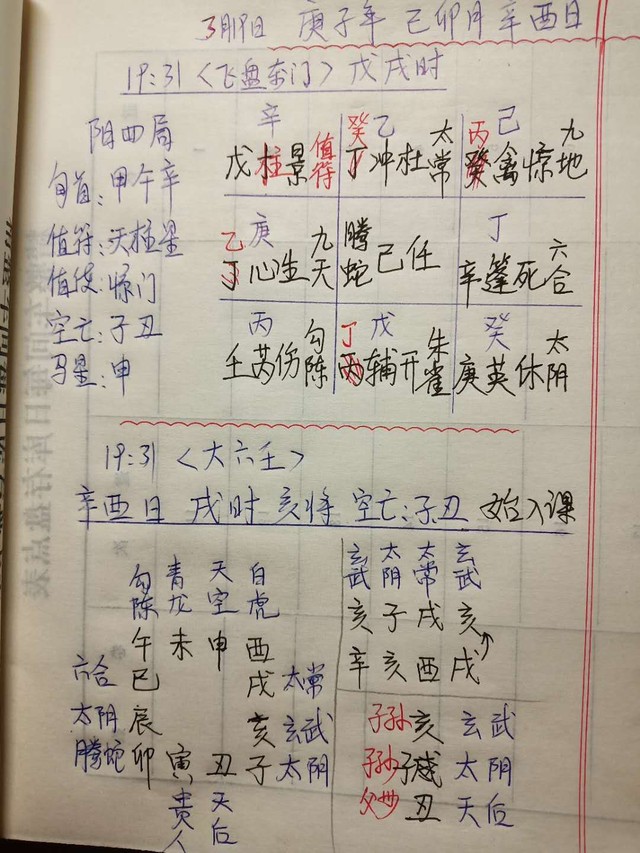 3月19日 庚子年 己卯月 辛酉日
19:31〈飞盘奇门〉戊戌时
阳四局
旬首:甲午辛
值符:天柱星
值使:惊门
空亡:子丑
马星:申
辛 癸乙 太 丙己 九
戊柱景值符 丁冲杜常 癸禽惊地
乙庚 九 腾 丁 六
丁心生天 蛇己任 辛蓬死合
丙 勾 丁戊 朱 癸 太
壬芮伤陈 丙辅开雀 庚英休阴
19:31〈大六壬〉
辛酉日 戌时 亥将 空亡:子丑 始入课
勾陈 青龙 天空 白虎
午 未 申 酉
六合 巳 戌 太常
太阴 辰 亥 玄武
腾蛇 卯 寅 丑 子 太阴
贵人 天后
玄武 太阴 太常 玄武
亥 子 戌 亥
辛 亥 酉 戌
子孙 亥 玄武
子孙 子 太阴
父母 丑 天后